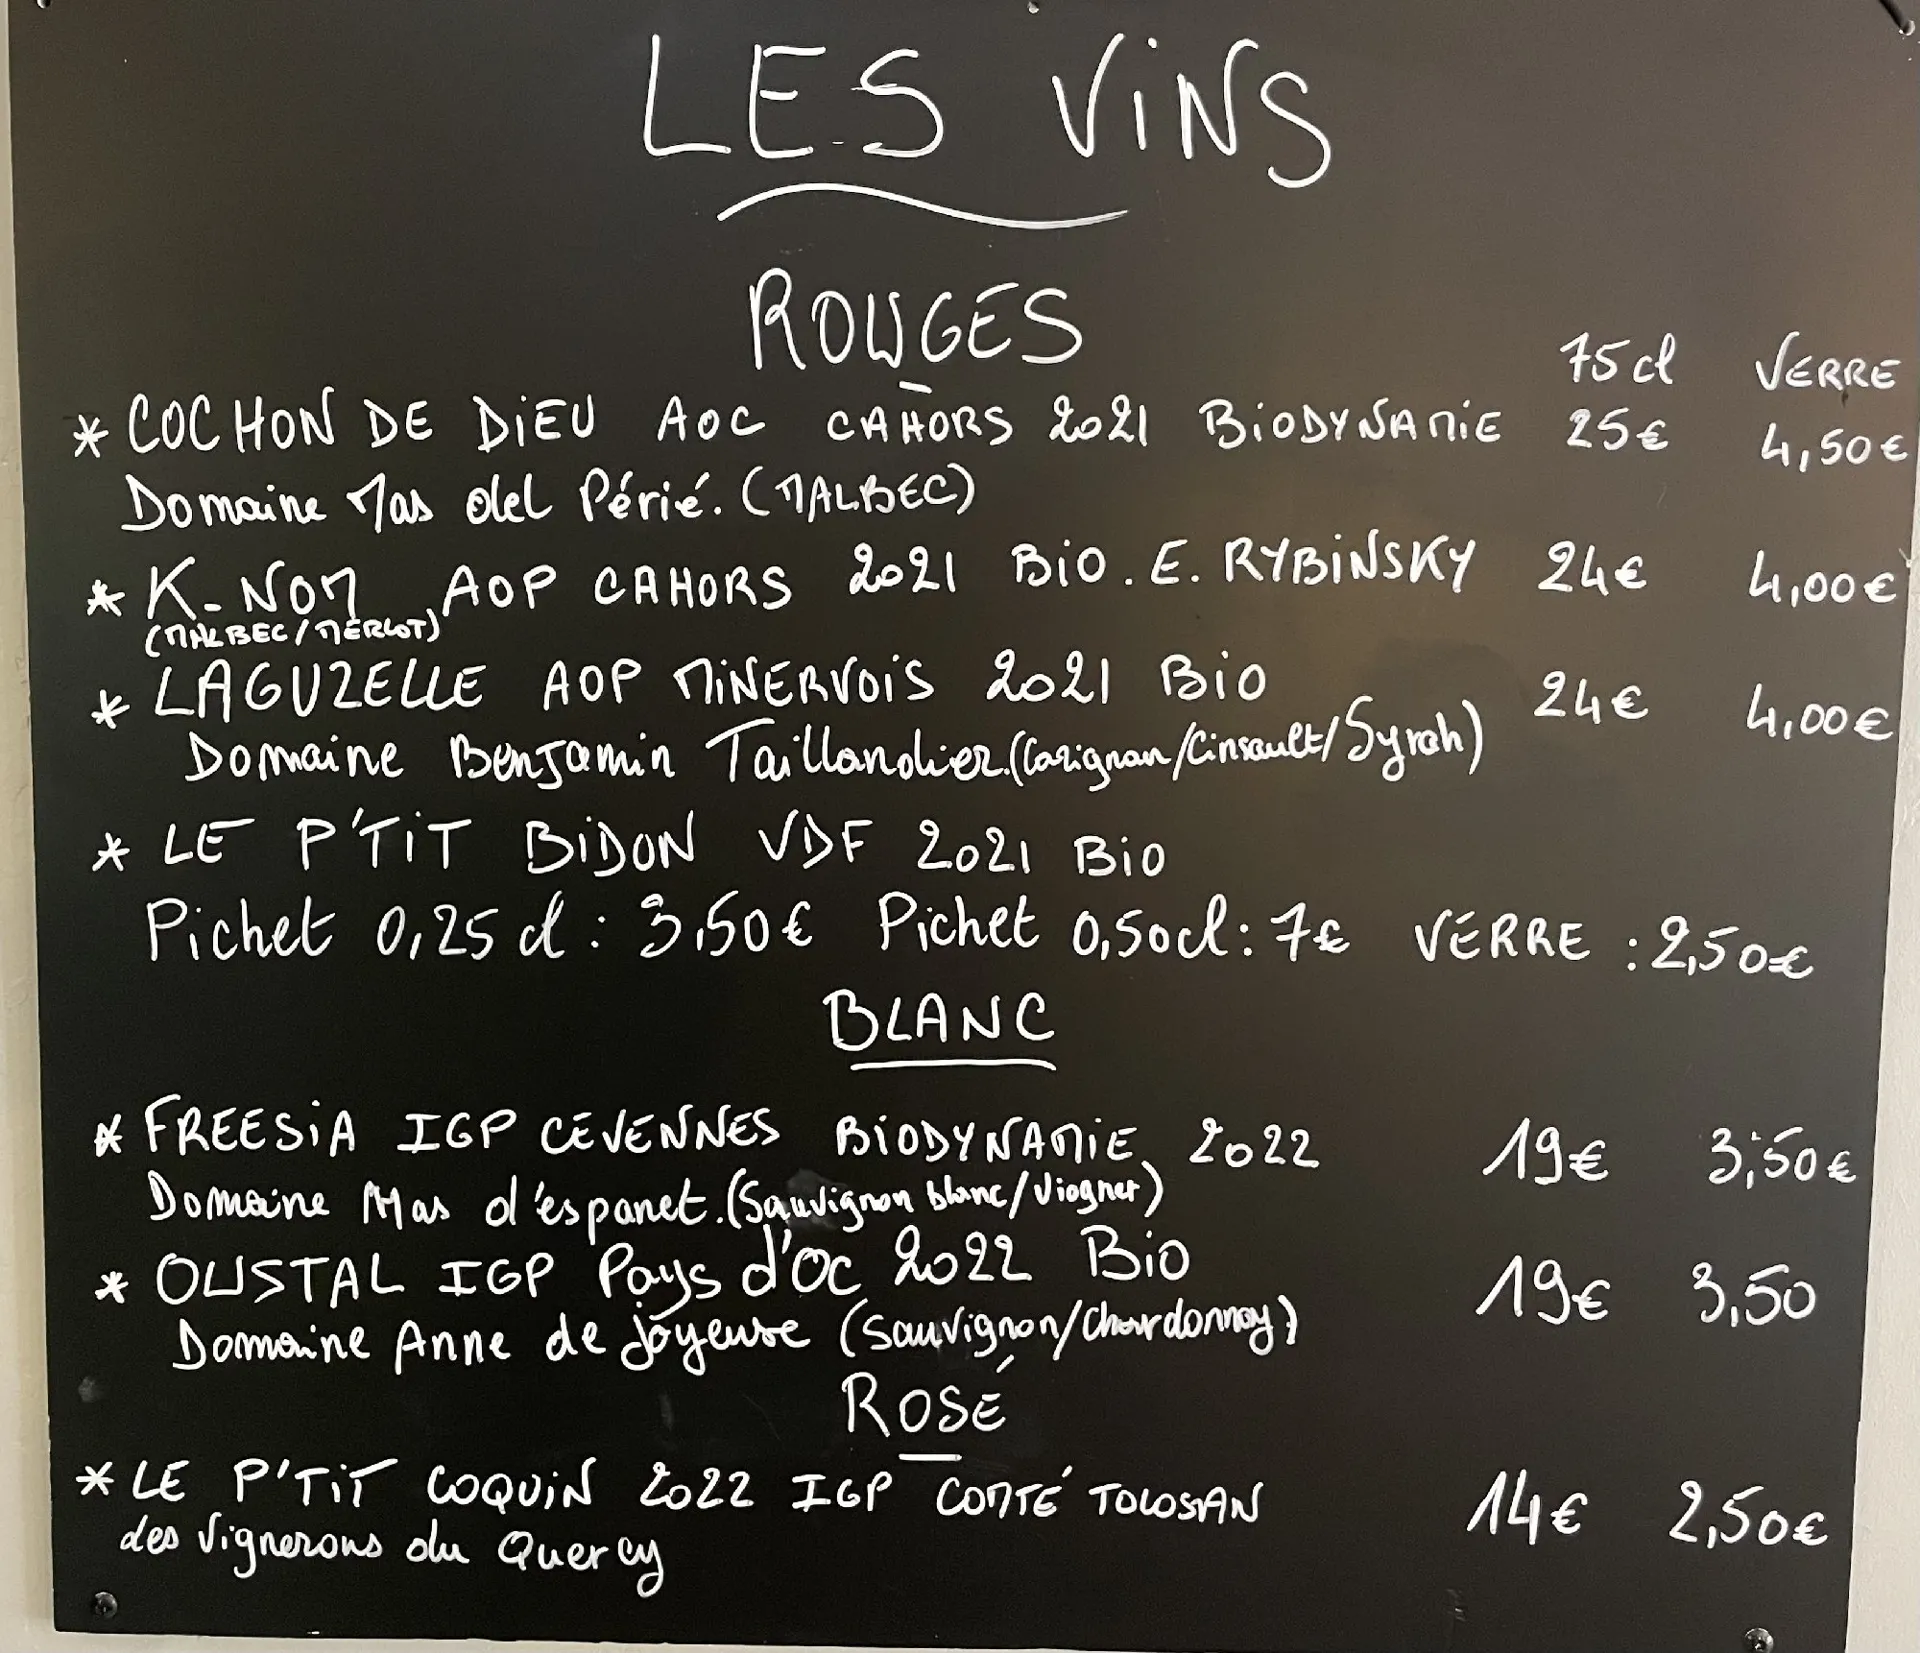 LES VINS
ROUGES
75 cl VERRE
* COCHON DE DIEU AOC CAHORS 2021 BIODYNAMIE 25€ 4,50€
Domaine Mas del Périé. (MALBEC)
* K-NOM AOP CAHORS 2021 BIO. E. RYBINSKY 24€ 4,00€
(MALBEC/MERLOT)
* LAGUZELLE AOP MINERVOIS 2021 BIO 24€ 4,00€
Domaine Benjamin Taillandier. (Carignan/Cinsault/Syrah)
* LE P'TIT BIDON VDF 2021 BIO
Pichet 0,25 cl : 3,50€ Pichet 0,50cl : 7€ VERRE : 2,50€
BLANC
* FREESIA IGP CEVENNES BIODYNAMIE 2022 19€ 3,50€
Domaine Mas d'espanet. (Sauvignon blanc/Viogner)
* OUSTAL IGP Pays d'Oc 2022 Bio 19€ 3,50
Domaine Anne de joyeuse (Sauvignon/Chardonnay)
ROSÉ
* LE P'TIT COQUIN 2022 IGP COMTÉ TOLOSAN 14€ 2,50€
des Vignerons du Quercy